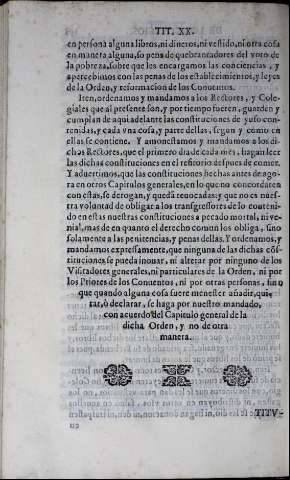 TIT. XX.
en persona alguna libros, ni dineros, ni vestido, ni otra cosa
en manera alguna, so pena de quebrantadores del voto de
la pobreza, sobre que les encargamos las conciencias, y
apercebimos con las penas de los establecimientos, y leyes
de la Orden, y reformacion de los Conventos.
Iten, ordenamos y mandamos a los Rectores, y Cole-
giales que al presente son, y por tiempo fueren, guarden y
cumplan de aqui adelante las constituciones de yuso con-
tenidas, y cada vna cosa, y parte dellas, segun y como en
ellas se contiene. Y amonestamos y mandamos a los di-
chos Rectores, que el primero dia de cada mes, hagan leer
las dichas constituciones en el refitorio despues de comer.
Y aduertimos, que las constituciones hechas antes de ago-
ra en otros Capitulos generales, en lo que no concordaren
con estas, se derogan, y queda reuocadas: y que no es nues-
tra voluntad de obligar a los transgressores de lo conteni-
do en estas nuestras constituciones a pecado mortal, ni ve-
nial, mas de en quanto el derecho comun los obliga, sino
solamente a las penitencias, y penas dellas. Y ordenamos, y
mandamos expressamente, que ninguna de las dichas cōs-
tituciones se pueda inouar, ni alterar por ninguno de los
Visitadores generales, ni particulares de la Orden, ni por
los Priores de los Conuentos, ni por otras personas, sino
que quando alguna cosa fuere menester añadir, qui-
tar, ò declarar, se haga por nuestro mandado,
con acuerdo del Capitulo general de la
dicha Orden, y no de otra
manera.
TITV-